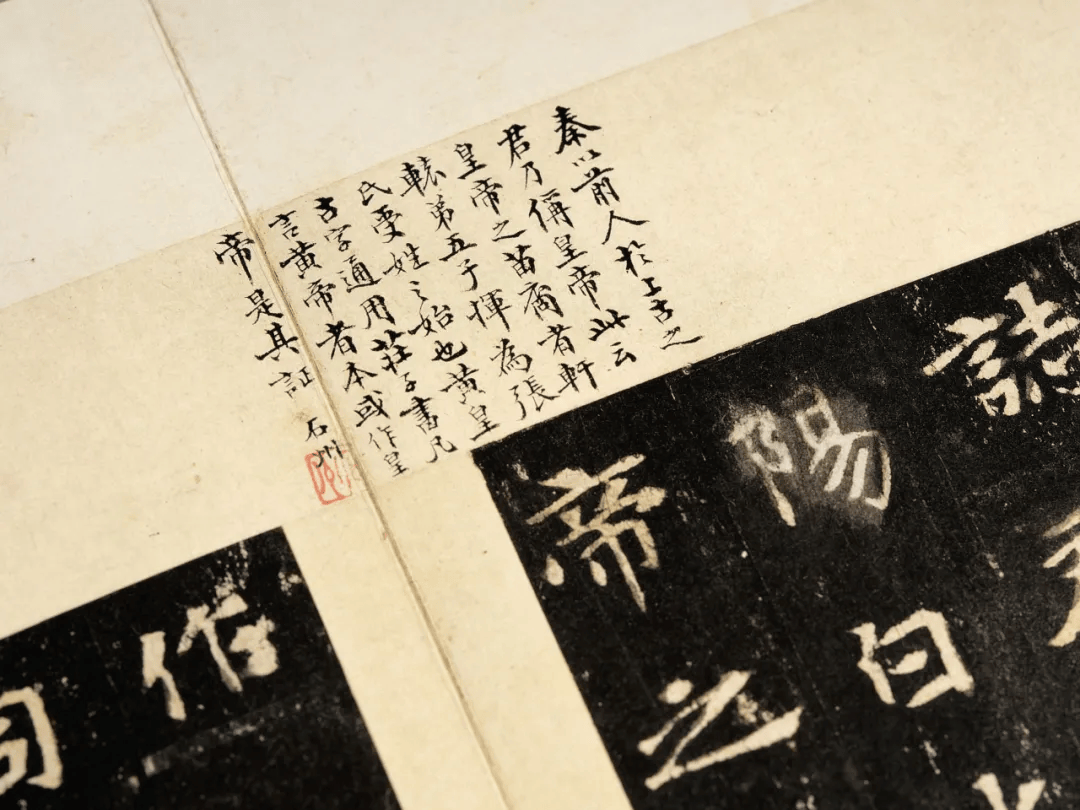 秦以前人於上古之
君乃偁皇帝此云
皇帝之苗裔者軒
轅弟五子揮為張
氏受姓之始也黄皇
古字通用莊子書凡
言黄帝者本或作皇
帝是其証 石州
誌
陽白
帝之
作